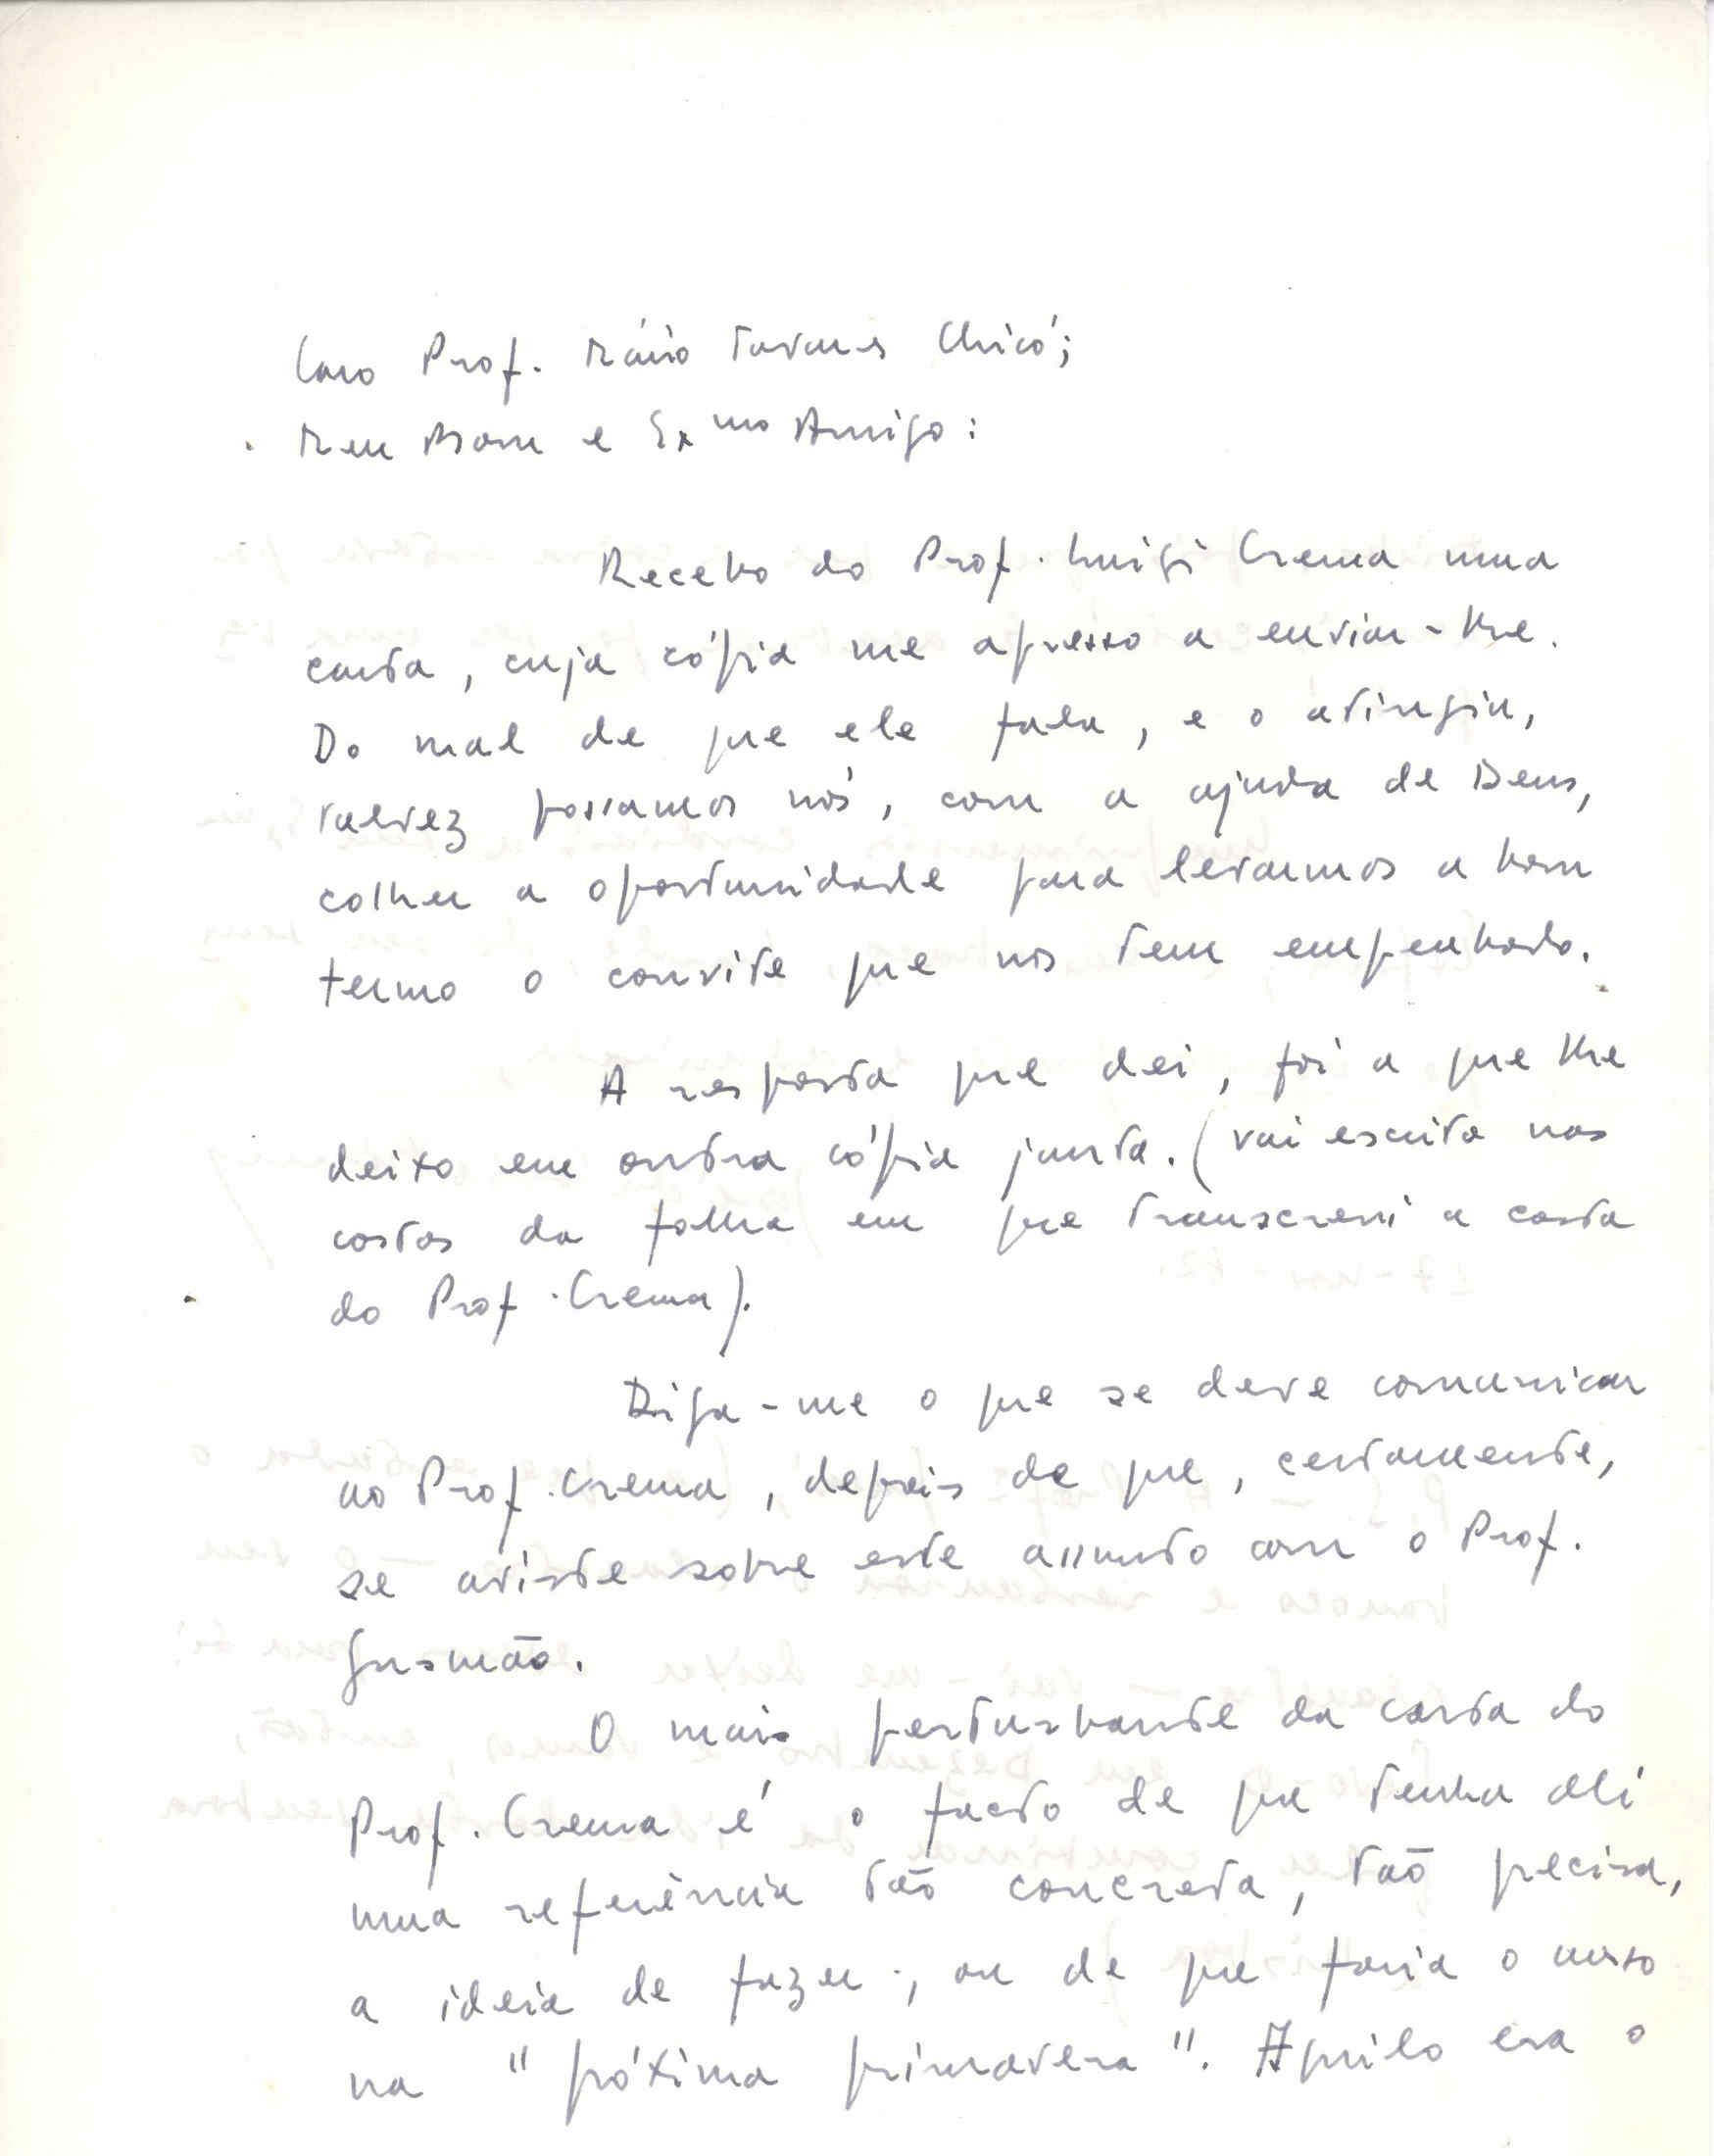 Caro Prof. Mário Tavares Chicó;
Meu Bom e Exmo Amigo:
Recebo do Prof. Luigi Crema uma
carta, cuja cópia me apresso a enviar-lhe.
Do mal de que ele fala, e o atingiu,
talvez possamos nós, com a ajuda de Deus,
colher a oportunidade para levarmos a bom
termo o convite que nos tem empenhado.
A resposta que dei, foi a que lhe
deixo em outra cópia junta. (vai escrita nas
costas da folha em que transcrevi a carta
do Prof. Crema).
Diga-me o que se deve comunicar
ao Prof. Crema, depois de que, certamente,
se aviste sobre este assunto com o Prof.
Gusmão.
O mais perturbante da carta do
Prof. Crema é o facto de que tenha ali
uma referência tão concreta, tão precisa,
a ideia de fazer, ou de que faria o curso
na "próxima primavera". Aquilo era o